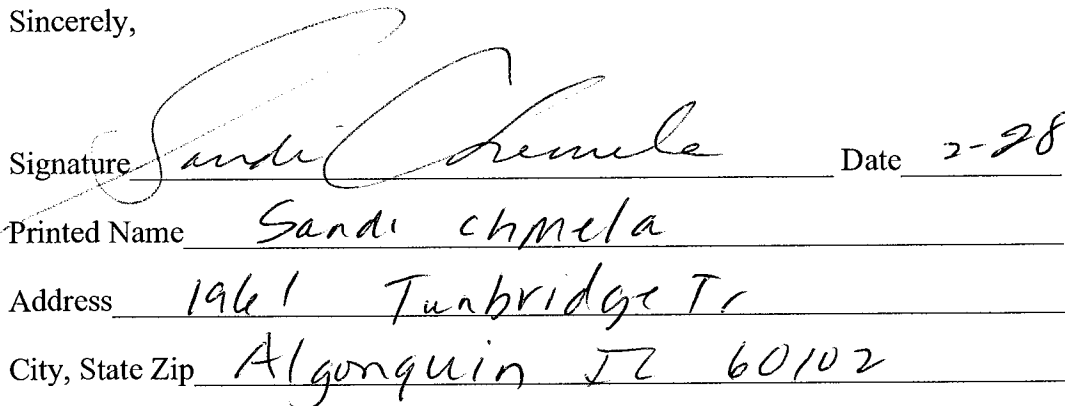 Sincerely,
Signature Sandi Chmela Date 2-28
Printed Name Sandi chmela
Address 1961 Tunbridge Tr
City, State Zip Algonquin IL 60102